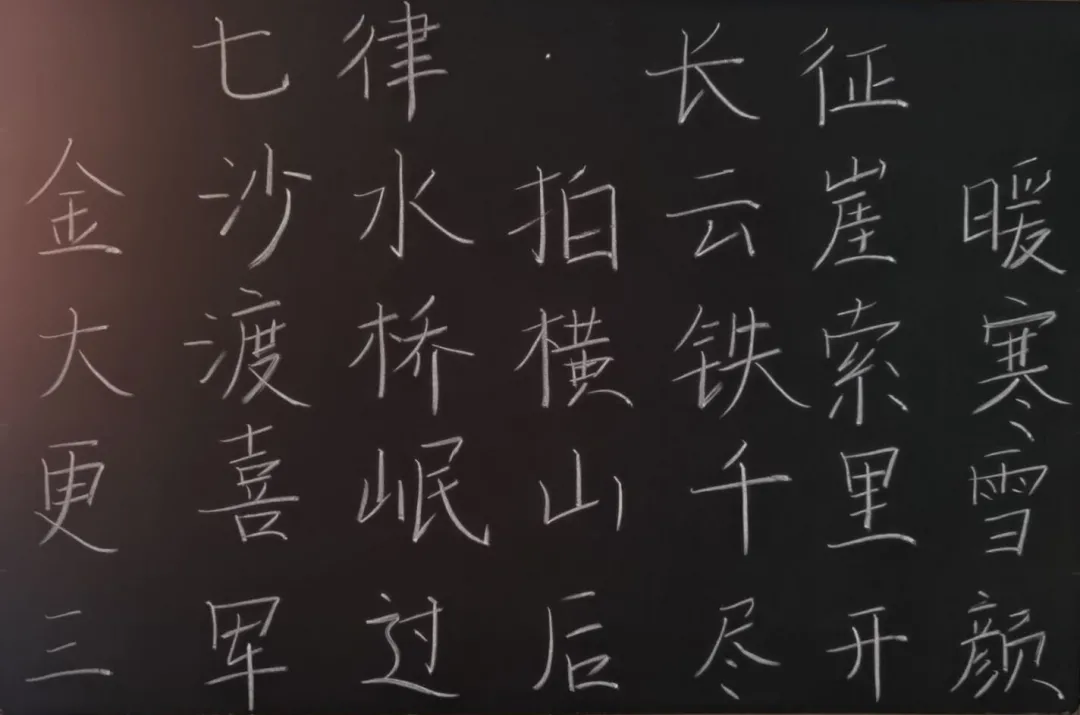 七律·长征
金沙水拍云崖暖
大渡桥横铁索寒
更喜岷山千里雪
三军过后尽开颜